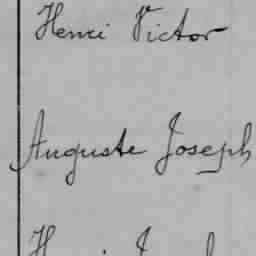 Henri Victor
Auguste Joseph